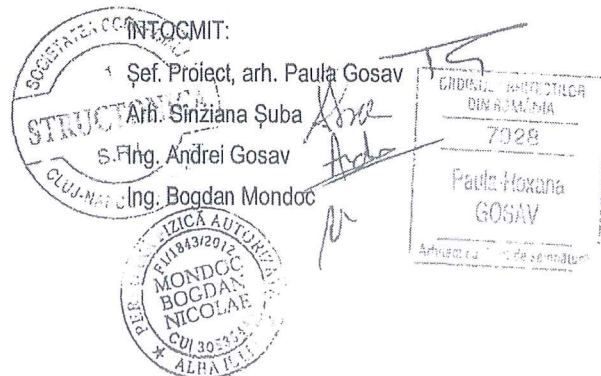 ÎNTOCMIT:
Șef. Proiect, arh. Paula Gosav
Arh. Sînziana Șuba
Ing. Andrei Gosav
Ing. Bogdan Mondoc
SOCIETATEA
STRUCTONICA
S.R.L.
CLUJ-NAPOCA
ORDINUL ARHITECȚILOR
DIN ROMÂNIA
7028
Paula-Roxana
GOSAV
Arhitect cu drept de semnătură
PERSOANĂ FIZICĂ AUTORIZATĂ
F1/1843/2012
MONDOC
BOGDAN
NICOLAE
CUI
ALBA IULIA